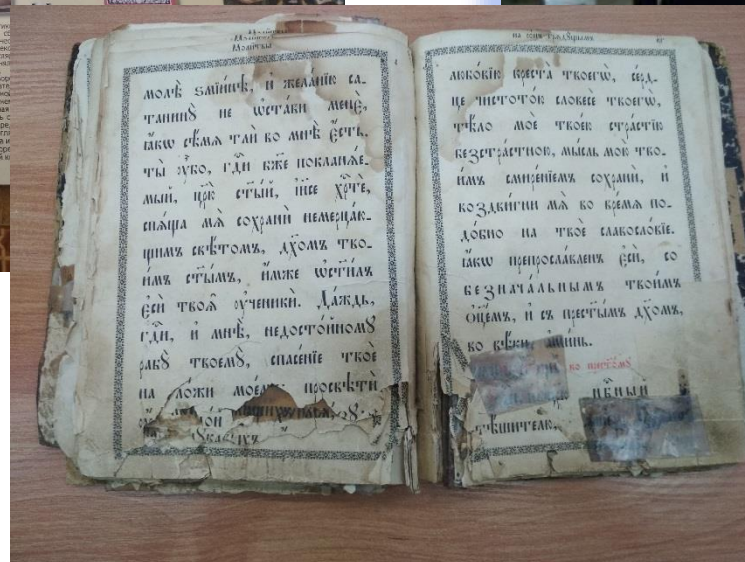 Моли́твы
мо́лѣ ѕмі́инѣ, и҆ жела́нїю са-
танинꙋ̀ не ѡ҆ста́ви менѐ,
ꙗ҆́кѡ сѣ́мѧ тлѝ во мнѣ̀ є҆́сть.
ты̀ ᲂу҆̀бо, гдⷭ҇и бж҃е покланѧ́е-
мый, цр҃ю̀ ст҃ы́й, і҆и҃се хрⷭ҇тѐ,
спѧ́ща мѧ̀ сохранѝ немерца́ю-
щимъ свѣ́томъ, дх҃омъ тво-
и́мъ ст҃ы́мъ, и҆́мже ѡ҆ст҃и́лъ
є҆сѝ твоѧ̑ ᲂу҆ченикѝ. Да́ждь,
гдⷭ҇и, и҆ мнѣ̀, недосто́йномꙋ
рабꙋ̀ твоемꙋ̀, спасе́нїе твоѐ
на ло́жи мое́мъ: просвѣтѝ
на со́нъ грѧдꙋ́щымъ
любо́вїю крⷭ҇та̀ твоегѡ̀, се́рд-
це чистото́ю словесѐ твоегѡ̀,
тѣ́ло моѐ твое́ю стра́стїю
безстра́стною, мы́сль мою̀ тво-
и́мъ смире́нїемъ сохранѝ, и҆
воздви́гни мѧ̀ во вре́мѧ по-
до́бно на твоѐ славосло́вїе.
ꙗ҆́кѡ препросла́вленъ є҆сѝ, со
безнача́льнымъ твои́мъ
ѻ҆ц҃е́мъ, и҆ съ прест҃ы́мъ дх҃омъ,
во вѣ́ки, а҆ми́нь.
ко прест҃о́мꙋ
нбⷭ҇ный
ᲂу҆тѣ́шителю,